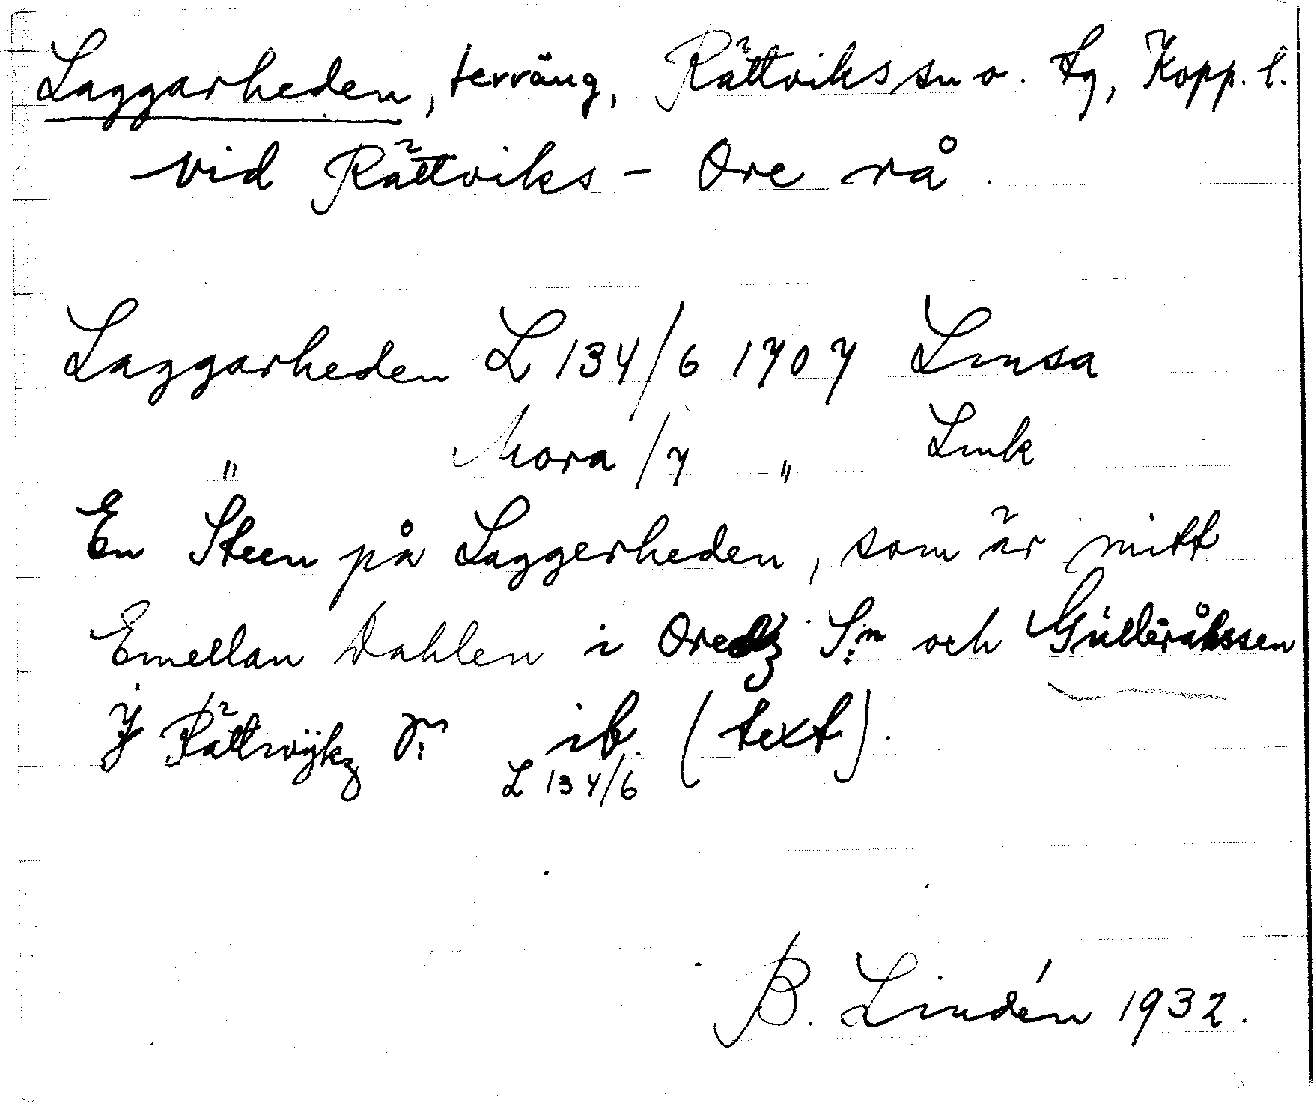 Laggarheden, terräng, Rättviks sn o. tg, Kopp. l.
vid Rättviks - Ore rå.
Laggarheden L 134/6 1707 Lmsa
" Mora /7 " Lmk
En Steen på Laggerheden, som är mitt
Emellan Dahlen i Oredz S:n och Gulleråkssen
J Rättwÿkz ib (text).
L 134/6
B. Lindén 1932.